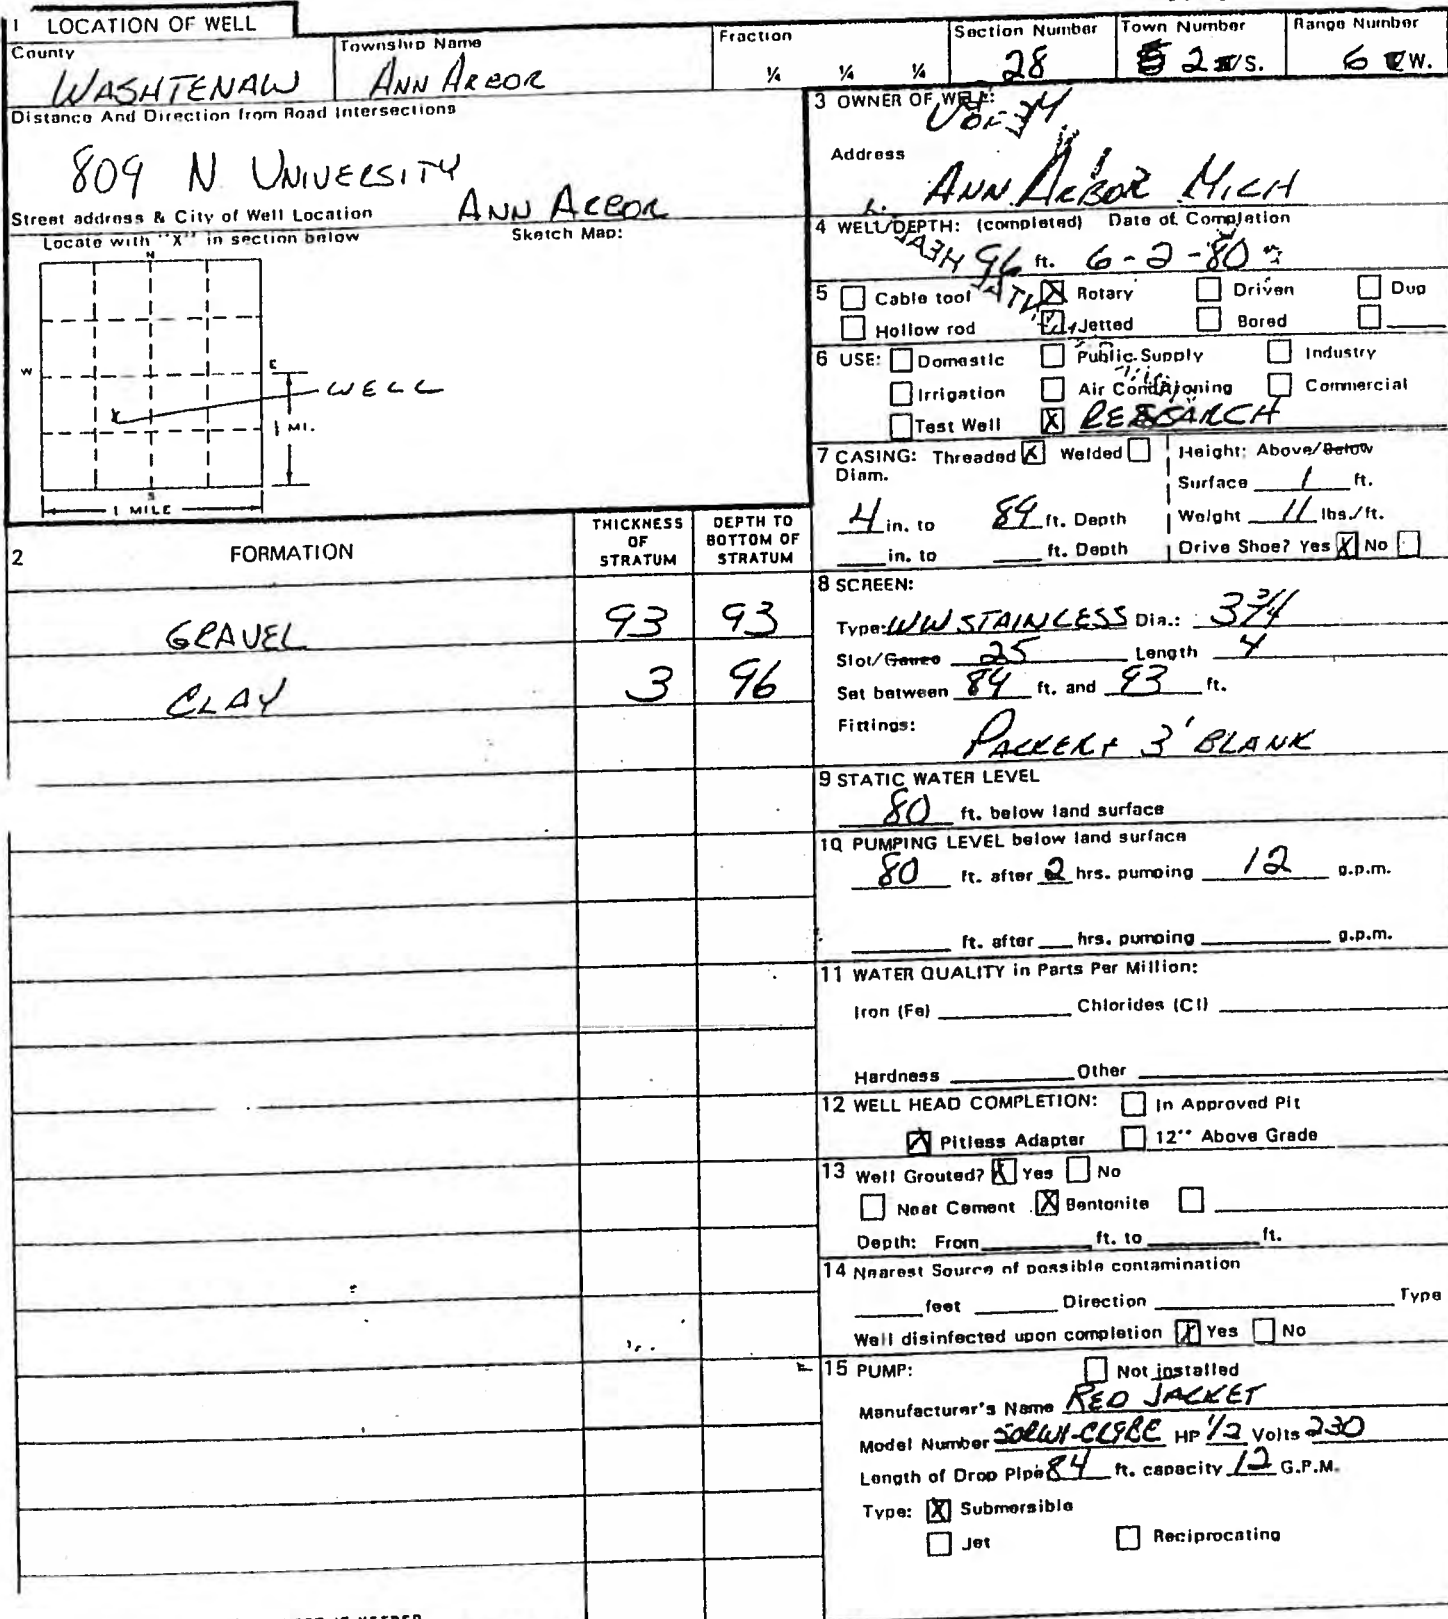 1 LOCATION OF WELL
County
WASHTENAW
Township Name
ANN ARBOR
Fraction
¼ ¼ ¼
Section Number
28
Town Number
2 N/S.
Range Number
6 E/W.
Distance And Direction from Road Intersections
809 N UNIVERSITY
Street address & City of Well Location
ANN ARBOR
Locate with "X" in section below
Sketch Map:
N
W
E
S
X
WELL
1 MI.
1 MILE
2 FORMATION
THICKNESS OF STRATUM
DEPTH TO BOTTOM OF STRATUM
GRAVEL 93 93
CLAY 3 96
3 OWNER OF WELL:
U of M
Address
ANN ARBOR MICH
4 WELL DEPTH: (completed) Date of Completion
96 ft. 6-2-80
5 Cable tool X Rotary Driven Dug
Hollow rod Jetted Bored
6 USE: Domestic Public Supply Industry
Irrigation Air Conditioning Commercial
Test Well X RESEARCH
7 CASING: Threaded X Welded
Diam.
4 in. to 89 ft. Depth
in. to ft. Depth
Height: Above/Below
Surface 1 ft.
Weight 11 lbs./ft.
Drive Shoe? Yes X No
8 SCREEN:
Type: WW STAINLESS Dia.: 3 3/4
Slot/Gauze 25 Length 4
Set between 89 ft. and 93 ft.
Fittings:
PACKER + 3' BLANK
9 STATIC WATER LEVEL
80 ft. below land surface
10 PUMPING LEVEL below land surface
80 ft. after 2 hrs. pumping 12 g.p.m.
ft. after hrs. pumping g.p.m.
11 WATER QUALITY in Parts Per Million:
Iron (Fe) Chlorides (Cl)
Hardness Other
12 WELL HEAD COMPLETION: In Approved Pit
X Pitless Adapter 12" Above Grade
13 Well Grouted? X Yes No
Neat Cement X Bentonite
Depth: From ft. to ft.
14 Nearest Source of possible contamination
feet Direction Type
Well disinfected upon completion X Yes No
15 PUMP: Not installed
Manufacturer's Name RED JACKET
Model Number HP 1/2 Volts 230
Length of Drop Pipe 84 ft. capacity 12 G.P.M.
Type: X Submersible
Jet Reciprocating